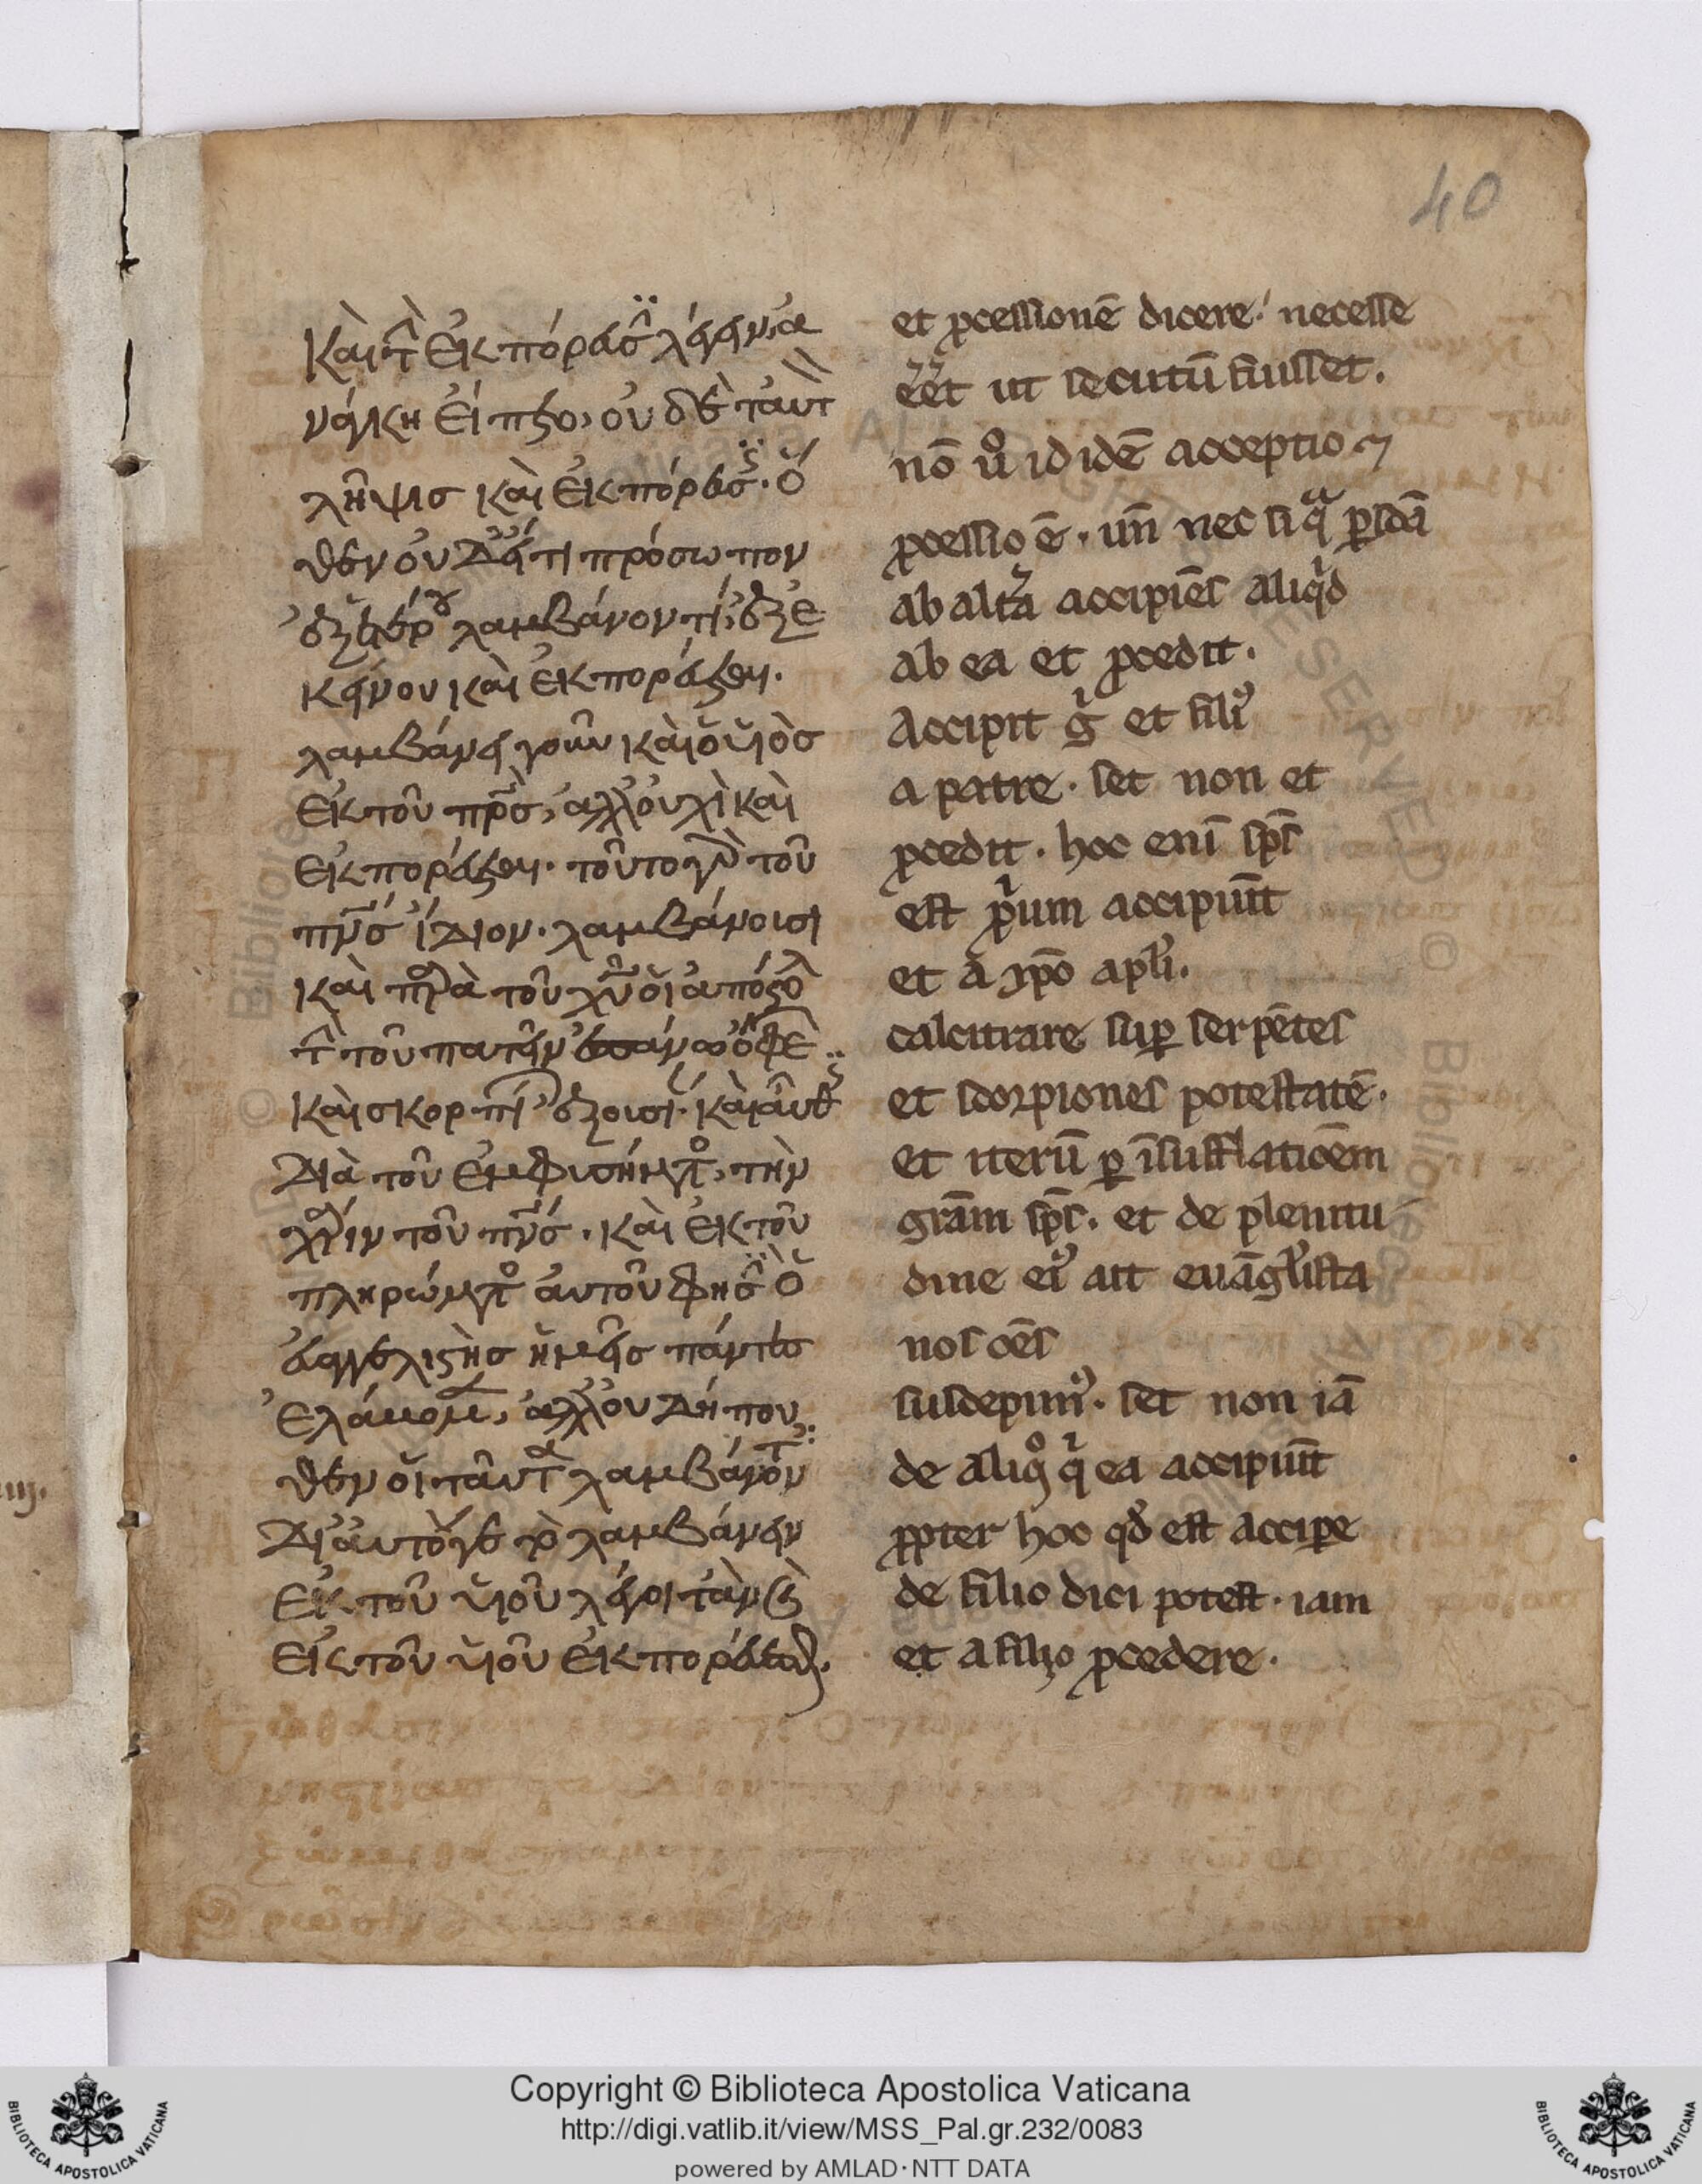 40
Καὶ τὴν ἐκπόρευσιν λέγειν, ἀ
νάγκη εἵπετο, οὐ δὲ ταὐτὸν
λῆψις καὶ ἐκπόρευσις. ὅ
θεν οὐδ' εἴ τι πρόσωπον
ἐξ ἑτέρου λαμβάνον τί, ἐξ ἐ
κείνου καὶ ἐκπορεύεται.
λαμβάνει γοῦν καὶ ὁ υἱὸς
ἐκ τοῦ πρς, ἀλλ' οὐχὶ καὶ
ἐκπορεύεται. τοῦτο γὰρ τοῦ
πνς ἴδιον. λαμβάνουσι
καὶ παρὰ τοῦ χυ οἱ ἀπόστολοι
τὴν τοῦ πατεῖν ἐπάνω ὄφεων
καὶ σκορπίων ἐξουσίαν. καὶ αὖθις
διὰ τοῦ ἐμφυσήματος, τὴν
χάριν τοῦ πνς. καὶ ἐκ τοῦ
πληρώματος αὐτοῦ φησὶν ὁ
εὐαγγελιστὴς ἡμεῖς πάντες
ἐλάβομεν, ἀλλ' οὐ δήπου
θεν οἱ ταῦτα λαμβάνοντες
δι' αὐτό γε τὸ λαμβάνειν
ἐκ τοῦ υἱοῦ λέγοιτ' ἂν καὶ
ἐκ τοῦ υἱοῦ ἐκπορεύεσθαι.
et ꝓcessionē dicere. necesse
eēt ut secutū fuisset.
nō ů id idē acceptio ⁊
ꝓcessio ē. uñ nec si qͣ ꝑsōā
ab alťa accipiēs aliqͥd
ab ea et ꝓcedit.
Accipit gͥ et filiꝰ
a patre. set non et
ꝓcedit. hoc enī sp̄s
est ꝓͥum accipiūt
et a xp̄o apl̓i.
calcitrare suꝑ serpētes
et scorpiones potestatē.
et iterū ꝑ īsufflatiōem
grām sp̄s. et de plenitu
dine eiꝰ ait euāgl̓ista
nos oēs
suscepimꝰ. set non iā
de aliqͦ qͥ ea accipiūt
ꝓpter hoc qd̓ est acciꝑe
de filio dici potest. iam
et a filio ꝓcedere.
Copyright © Biblioteca Apostolica Vaticana
http://digi.vatlib.it/view/MSS_Pal.gr.232/0083
powered by AMLAD·NTT DATA
BIBLIOTECA APOSTOLICA VATICANA
BIBLIOTECA APOSTOLICA VATICANA